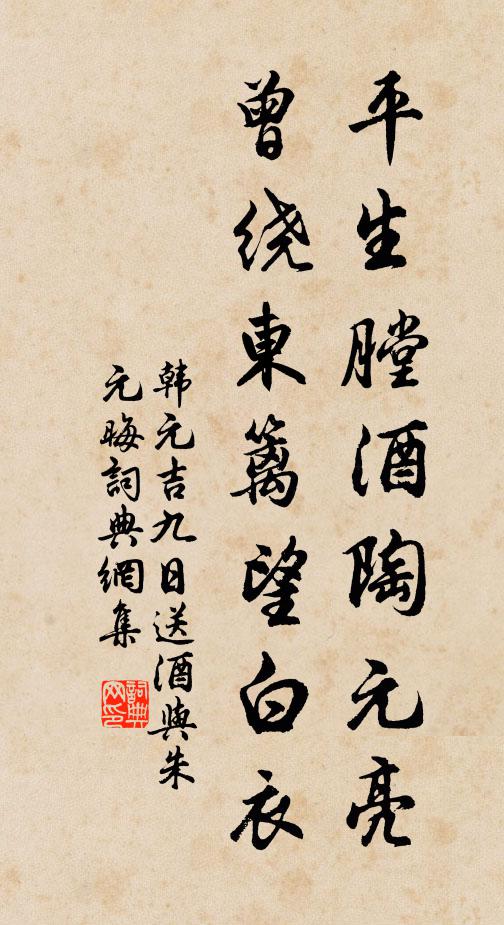 平生膛酒陶元亮
曾绕東篱望白衣
韩元吉九日送酒與朱
元晦詞典網集
詞典网印